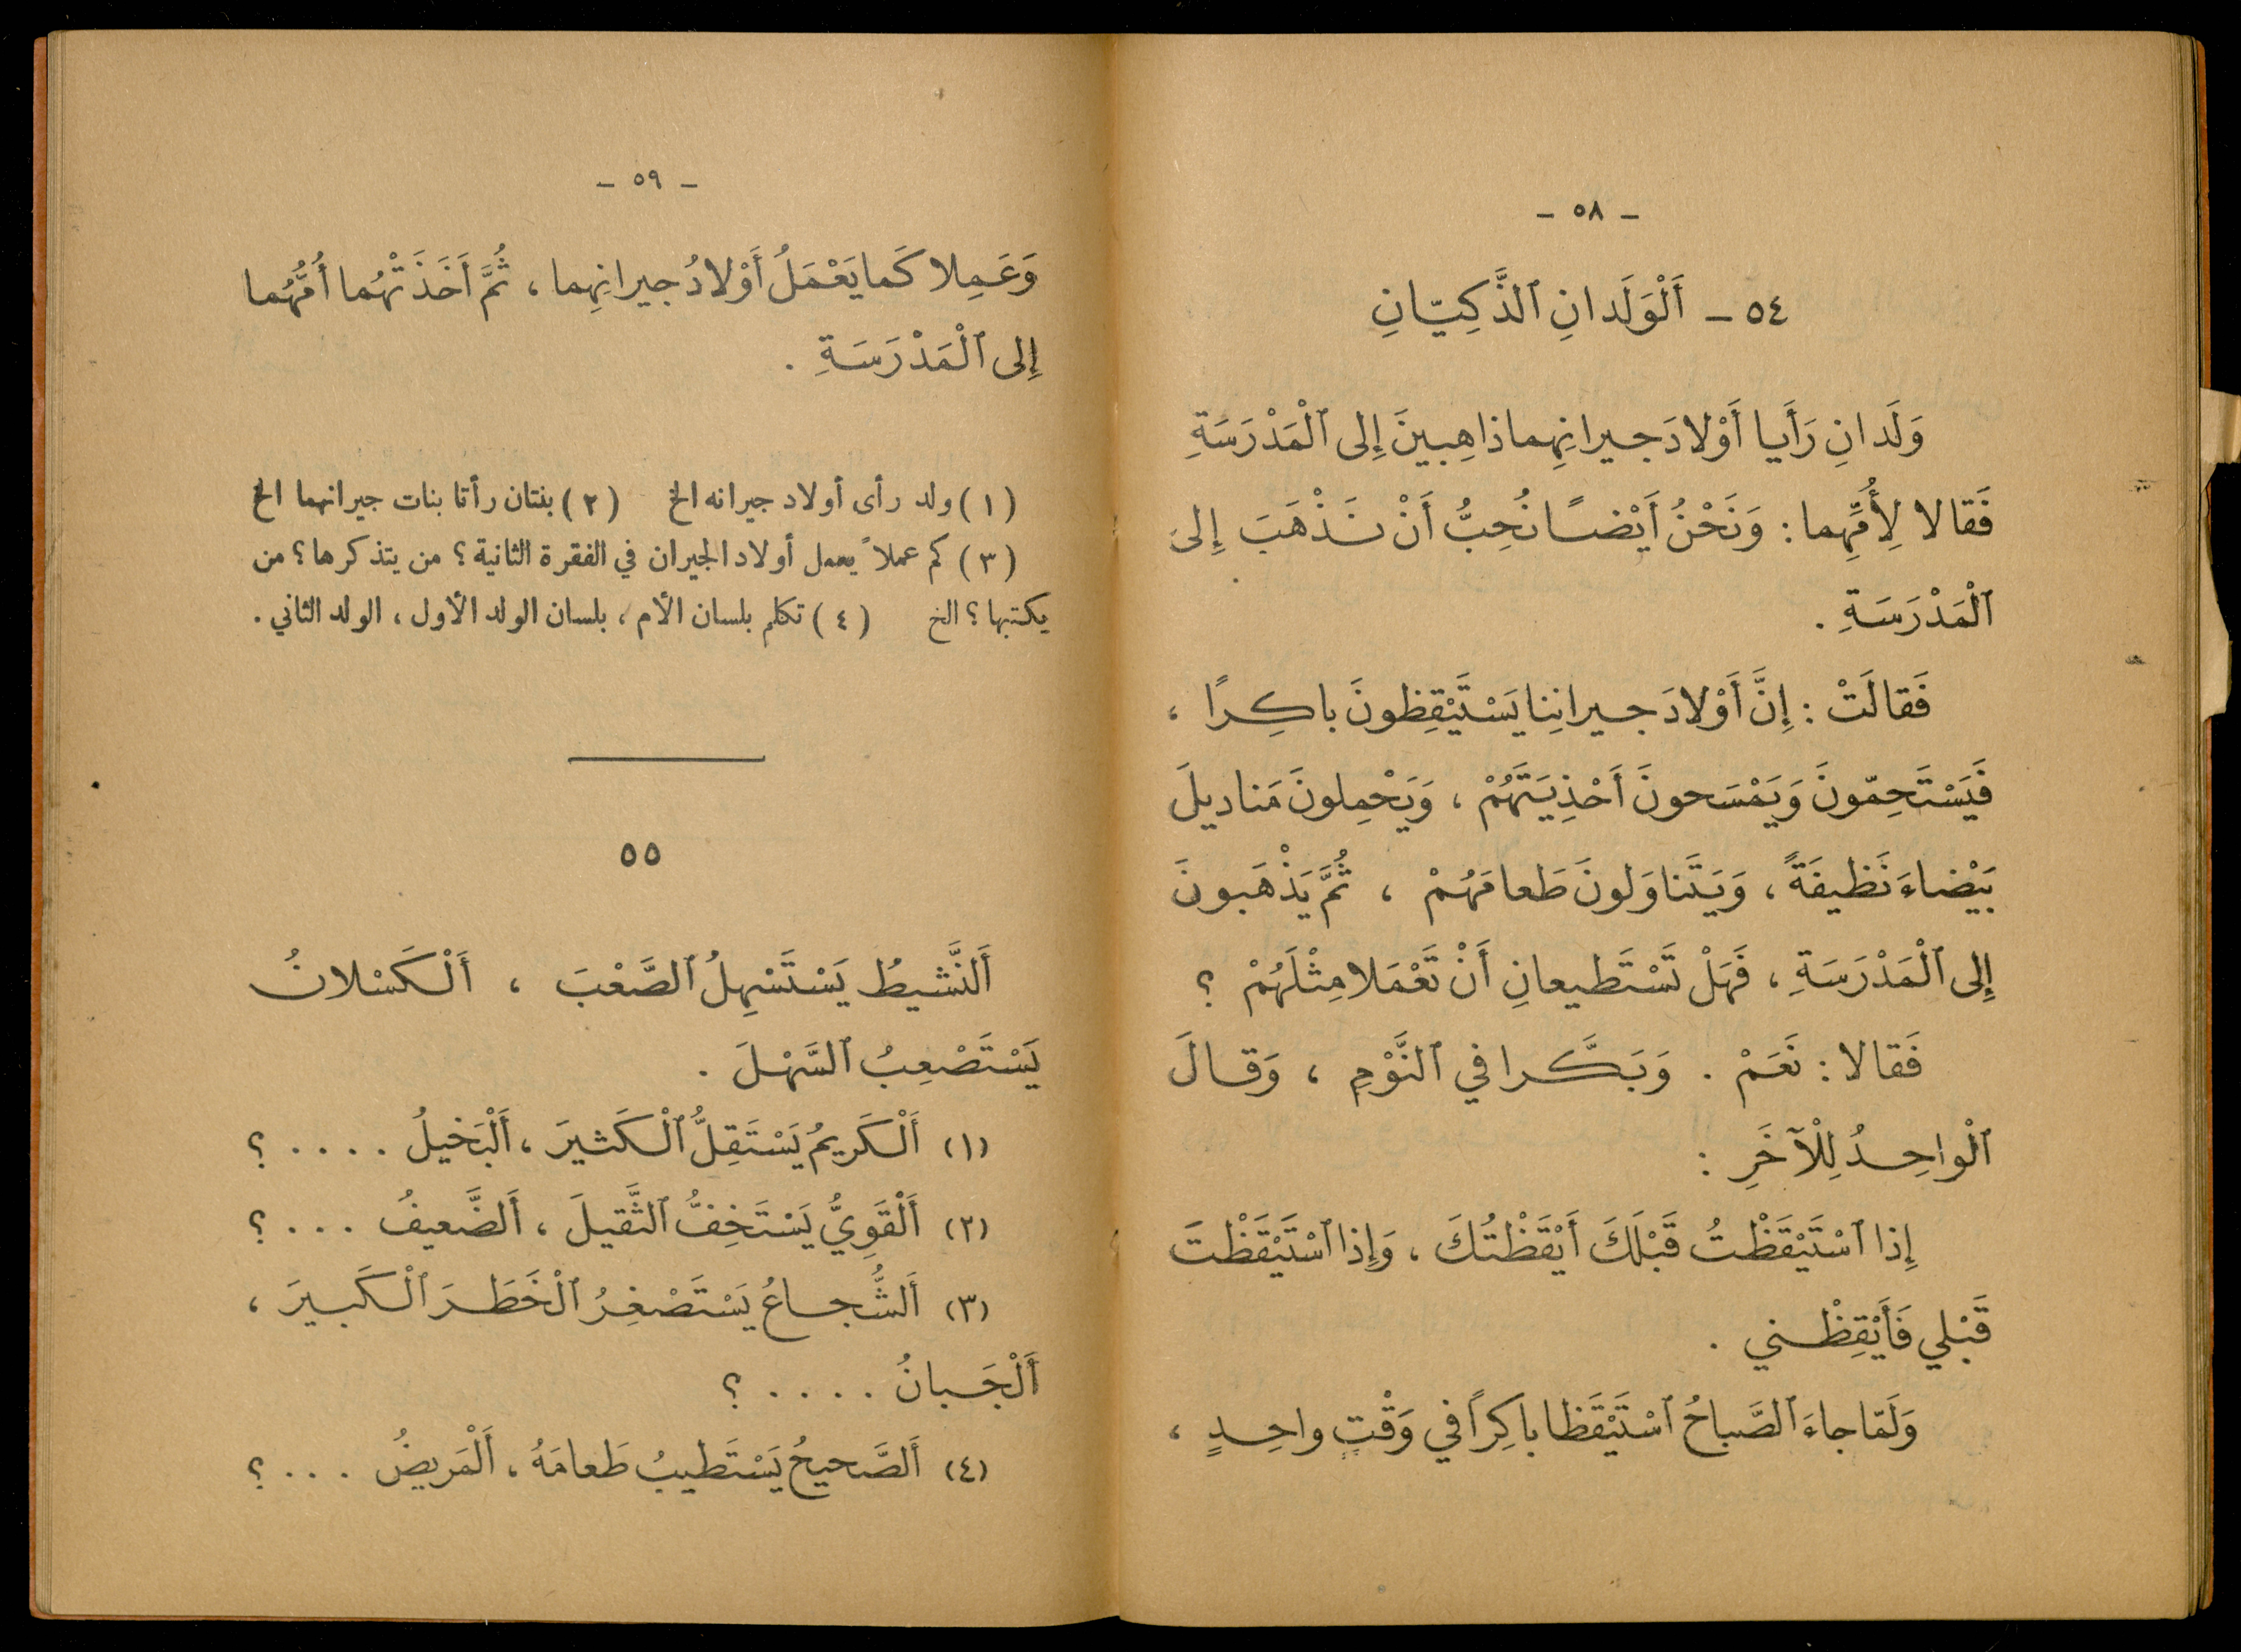 - ٥٨ -
٥٤ - أَلْوَلَدانِ ٱلذَّكِيّانِ
وَلَدانِ رَأَيا أَوْلادَ جيرانِهِما ذاهِبينَ إِلى ٱلْمَدْرَسَةِ
فَقالا لِأُمِّهِما : وَنَحْنُ أَيْضًا نُحِبُّ أَنْ نَذْهَبَ إِلى
ٱلْمَدْرَسَةِ .
فَقالَتْ : إِنَّ أَوْلادَ جيرانِنا يَسْتَيْقِظونَ باكِرًا ،
فَيَسْتَحِمّونَ وَيَمْسَحونَ أَحْذِيَتَهُمْ ، وَيَحْمِلونَ مَناديلَ
بَيْضاءَ نَظيفَةً ، وَيَتَناوَلونَ طَعامَهُمْ ، ثُمَّ يَذْهَبونَ
إِلى ٱلْمَدْرَسَةِ ، فَهَلْ تَسْتَطيعانِ أَنْ تَعْمَلا مِثْلَهُمْ ؟
فَقالا : نَعَمْ . وَبَكَّرا في ٱلنَّوْمِ ، وَقالَ
ٱلْواحِدُ لِلْآخَرِ :
إِذا ٱسْتَيْقَظْتُ قَبْلَكَ أَيْقَظْتُكَ ، وَإِذا ٱسْتَيْقَظْتَ
قَبْلي فَأَيْقِظْني .
وَلَمّا جاءَ ٱلصَّباحُ ٱسْتَيْقَظا باكِرًا في وَقْتٍ واحِدٍ ،
- ٥٩ -
وَعَمِلا كَما يَعْمَلُ أَوْلادُ جيرانِهِما ، ثُمَّ أَخَذَتْهُما أُمُّهُما
إِلى ٱلْمَدْرَسَةِ .
(١) ولد رأى أولاد جيرانه الخ (٢) بنتان رأتا بنات جيرانهما الخ
(٣) كم عملاً يعمل أولاد الجيران في الفقرة الثانية ؟ من يتذكرها ؟ من
يكتبها ؟ الخ (٤) تكلم بلسان الأم ، بلسان الولد الأول ، الولد الثاني .
٥٥
أَلنَّشيطُ يَسْتَسْهِلُ ٱلصَّعْبَ ، أَلْكَسْلانُ
يَسْتَصْعِبُ ٱلسَّهْلَ .
(١) أَلْكَريمُ يَسْتَقِلُّ ٱلْكَثيرَ ، أَلْبَخيلُ . . . . ؟
(٢) أَلْقَوِيُّ يَسْتَخِفُّ ٱلثَّقيلَ ، أَلضَّعيفُ . . . ؟
(٣) أَلشُّجاعُ يَسْتَصْغِرُ ٱلْخَطَرَ ٱلْكَبيرَ ،
أَلْجَبانُ . . . . ؟
(٤) أَلصَّحيحُ يَسْتَطيبُ طَعامَهُ ، أَلْمَريضُ . . . ؟